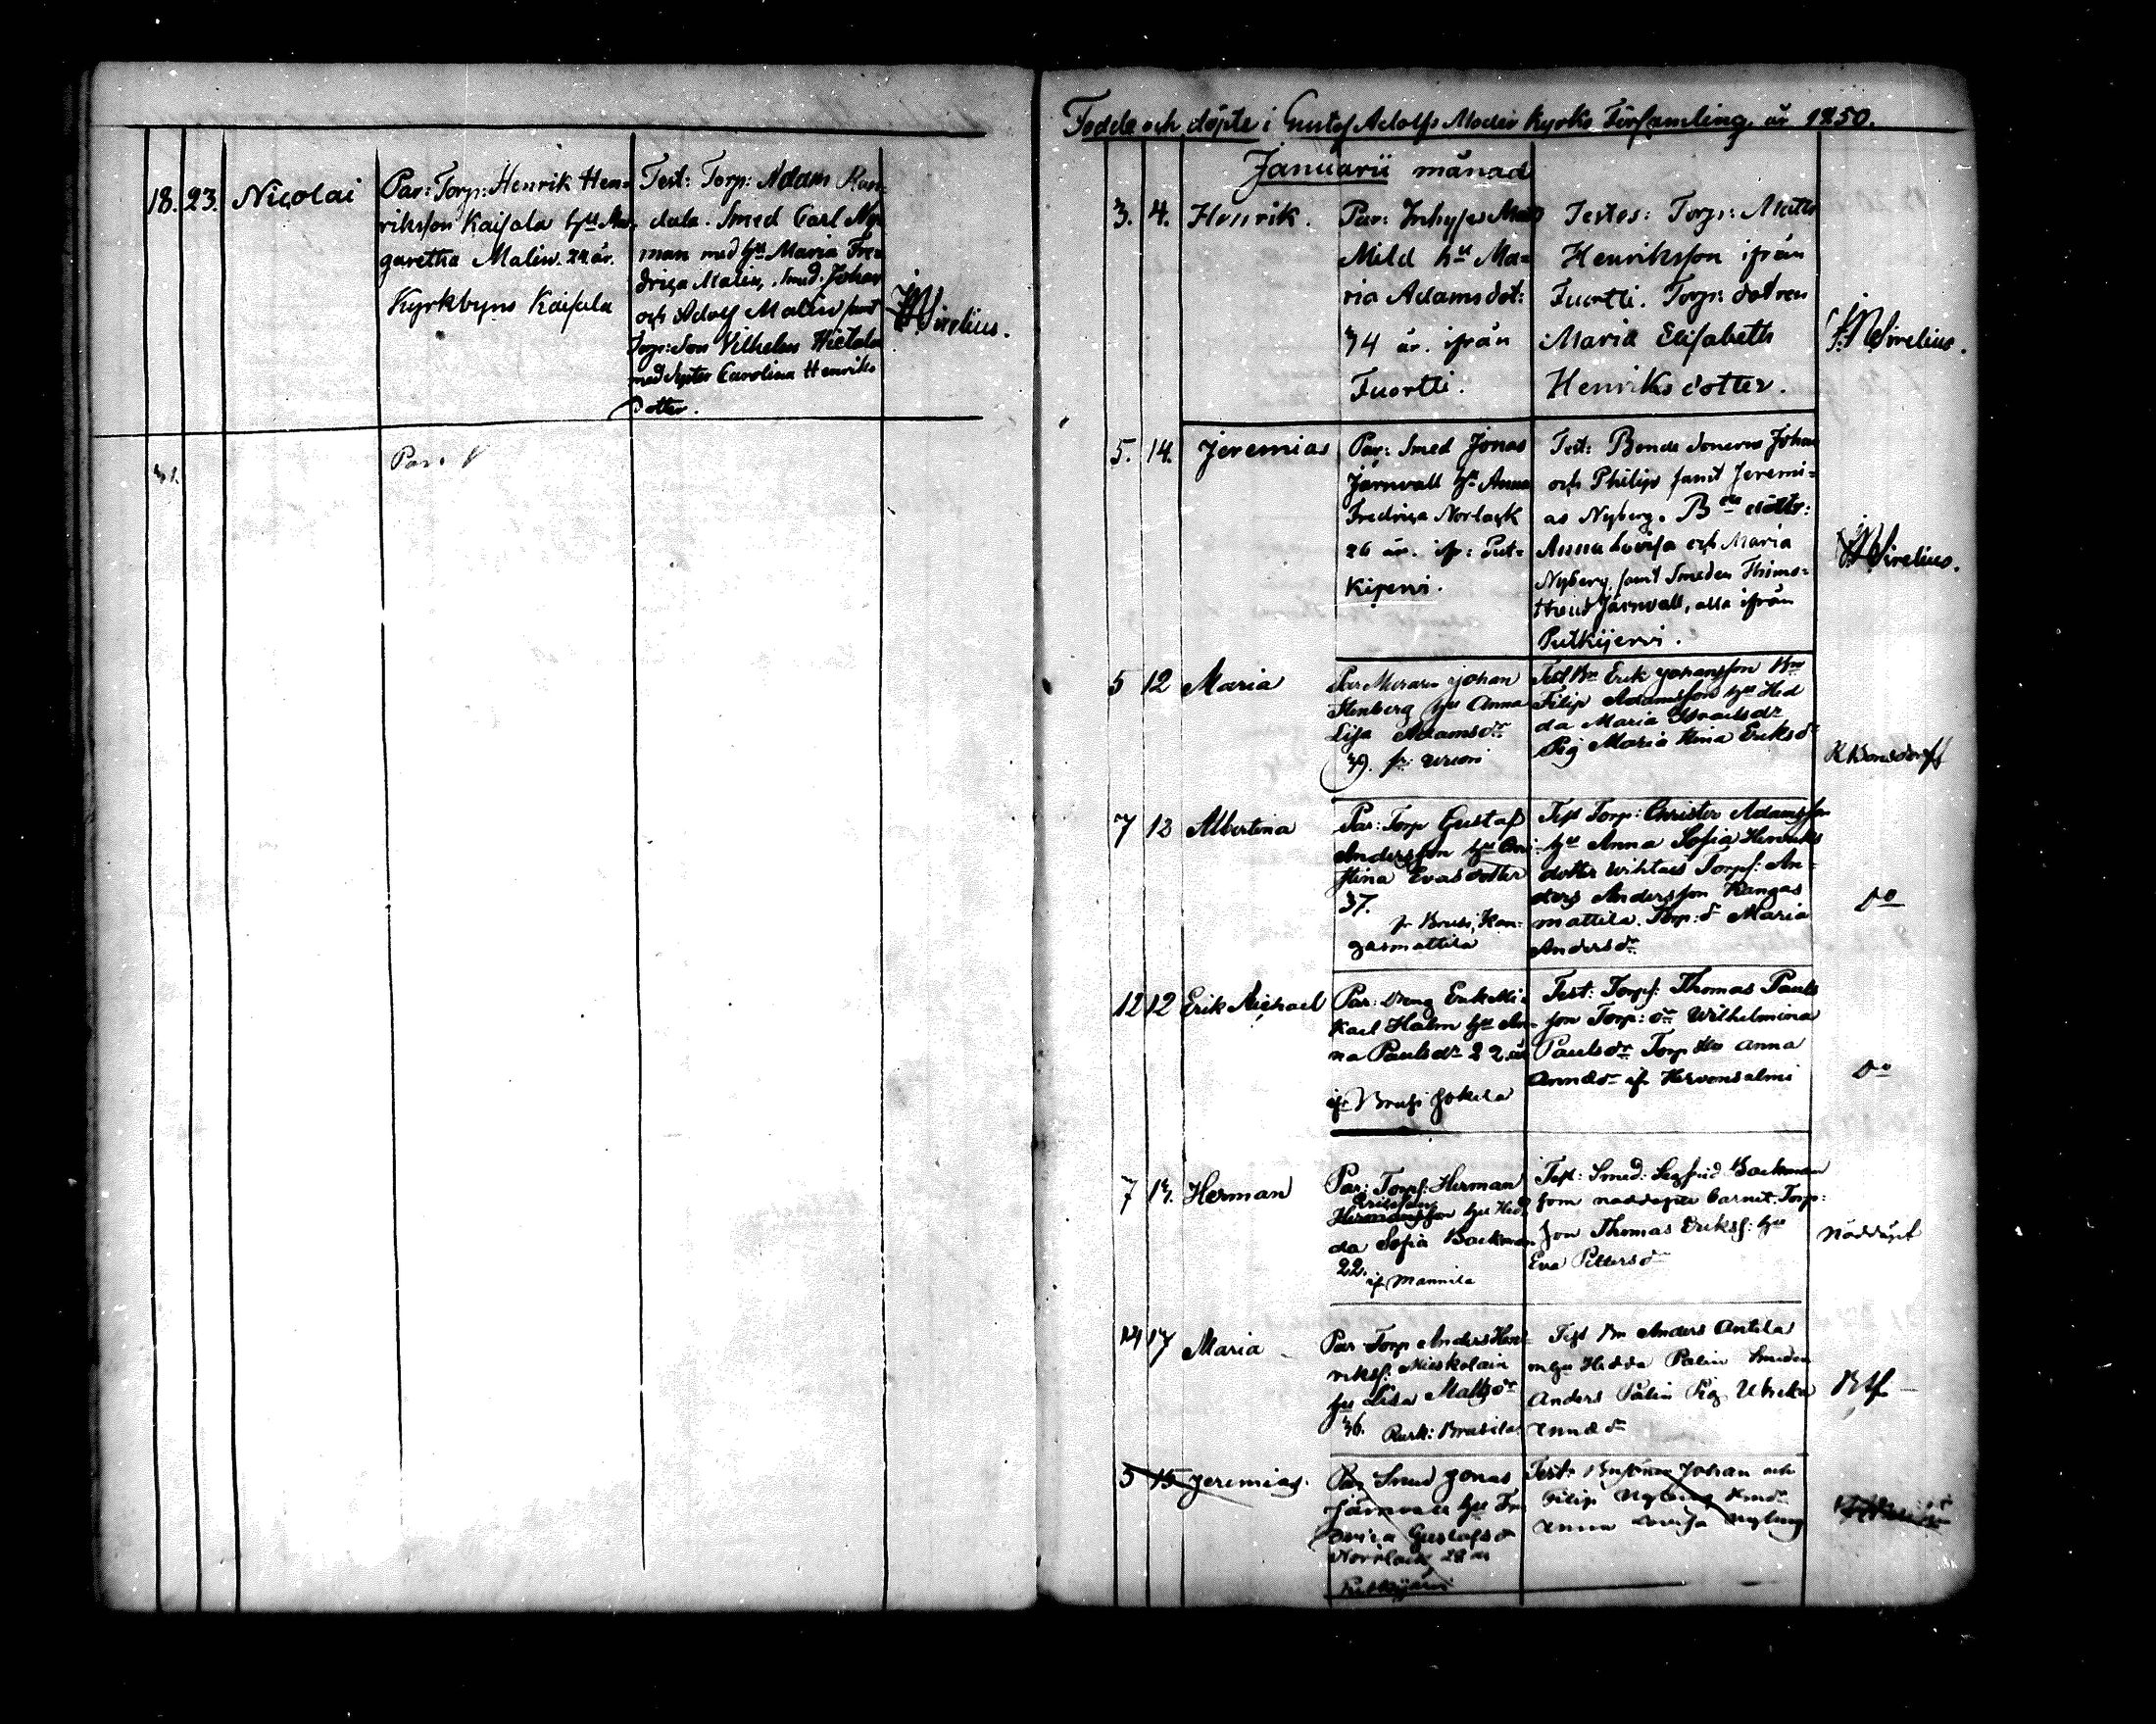 18. 23. Nicolai
Par: Torp: Henrik Hen=
riksson Kaisala hu Mar,
garetha Malin. 22 år.
Kyrkbyns Kaisala
Test: Torp: Adam Ran=
dala. Smed Carl Ny=
man med hu Maria Fre=
driga Malin, Smed. Johan
och Adolf Malin samt
Torp: Son Vilhelm Hietala
med Syster Carolina Henriks
dotter.
Sirelius.
31.
Par:
Födde och döpte i Gustaf Adolfs Moder kyrko Församling år 1850.
Januarii månad
3. 4. Henrik.
Par: Inhyses Matts
Mild hu Ma=
ria Adamsdot:
34 år. ifrån
Fuortti.
Testes: Torp: Matts
Henriksson ifrån
Fuortti. Torp: dotren
Maria Elisabeth
Henriksdotter.
Sirelius.
5. 14. Jeremias
Par: Smed Jonas
Järnvall hu Anna
Fredrica Norlack
26 år. ifr: Put=
kijervi.
Test: Bonde sönerne Johan
och Philip samt Jeremi=
as Nyberg. B dde döttr:
Anna Lovisa och Maria
Nyberg, samt Smeden Thimo=
theus Järnvall, alla ifrån
Putkijervi.
Sirelius.
5 12 Maria
Par Murare Johan
Stenberg hu Anna
Lisa Adamsdr
39. fr.
Test Bn Erik Johansson Bn
Filip Adamsson hu Hed
da Maria Israelsdr
Pig Maria Stina Eriksdr
K Bonsdorff
7 13 Albertina
Par: Torp Gustaf
Andersson hu
Stina Evasdotter
37.
fr Brusi, Kan=
gasmattila
Test Torp: Christer Adamsson
hu Anna Sofia Henriks
dotter Torps: An=
ders Andersson Kangas
mattila. Torp: d Maria
Andersdr
Do
12 12 Erik Michael
Par: Dreng Erik Mi=
kael Holm hu An=
na Paulsdr 22 år
ifr Brusi Jokela
Test: Torps: Thomas Pauls
son Torp: dr Wilhelmina
Paulsdr Torp Hu Anna
Annædr ifr Hervonsalmi
Do
7 17. Herman
Par: Torps: Herman
Eriksson
Hermansson hu Hed
da Sofia Backman
22.
if Mannila
Test: Smed: Segfrid Backman
som nöddöpte barnet. Torp:
son Thomas Eriksf: hu
Eva Pettersdr
Nöddöpt
14 17 Maria
Par Torp Anders Hen=
riksf:
hu Lisa Mattsdr
36.
Test Bn Anders Antila
m hu Hedda Palin Smeden
Anders Palin Pig Ulrika
Annædr
5 15 Jeremias.
Par Smed Jonas
Järnvall hu Fre
drica Gustafsd
Norrlack 28 år
Putkijärvi
Test: Johan och
Filip Nyberg
Anna Lovisa Nyberg